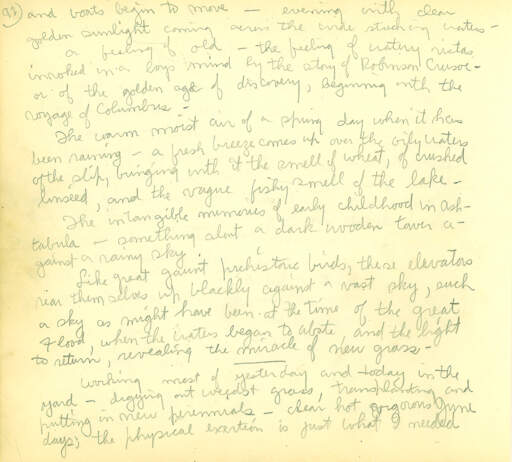 93) and boats begin to move — evening with clear
golden sunlight coming across the wide stretching waters —
or a feeling of old — the feeling of watery vistas
invoked in a boys mind by the story of Robinson Crusoe —
or of the golden age of discovery, beginning with the
voyage of Columbus —
The warm moist air of a spring day when it has
been raining — a fresh breeze comes up over the oily waters
of the slip, bringing with it the smell of wheat, of crushed
linseed, and the vague fishy smell of the lake —
The intangible memories of early childhood in Ash-
tabula — something about a dark wooden tower a-
gainst a rainy sky.
Like great gaunt prehistoric birds, these elevators
rear themselves up blackly against a vast sky, such
a sky as might have been at the time of the great
flood, when the waters began to abate and the light
to return, revealing the miracle of new grass —
Working most of yesterday and today in the
yard — digging out weeds & grass, transplanting and
putting in new perennials — clear hot gorgorous June
days; the physical exertion is just what I needed